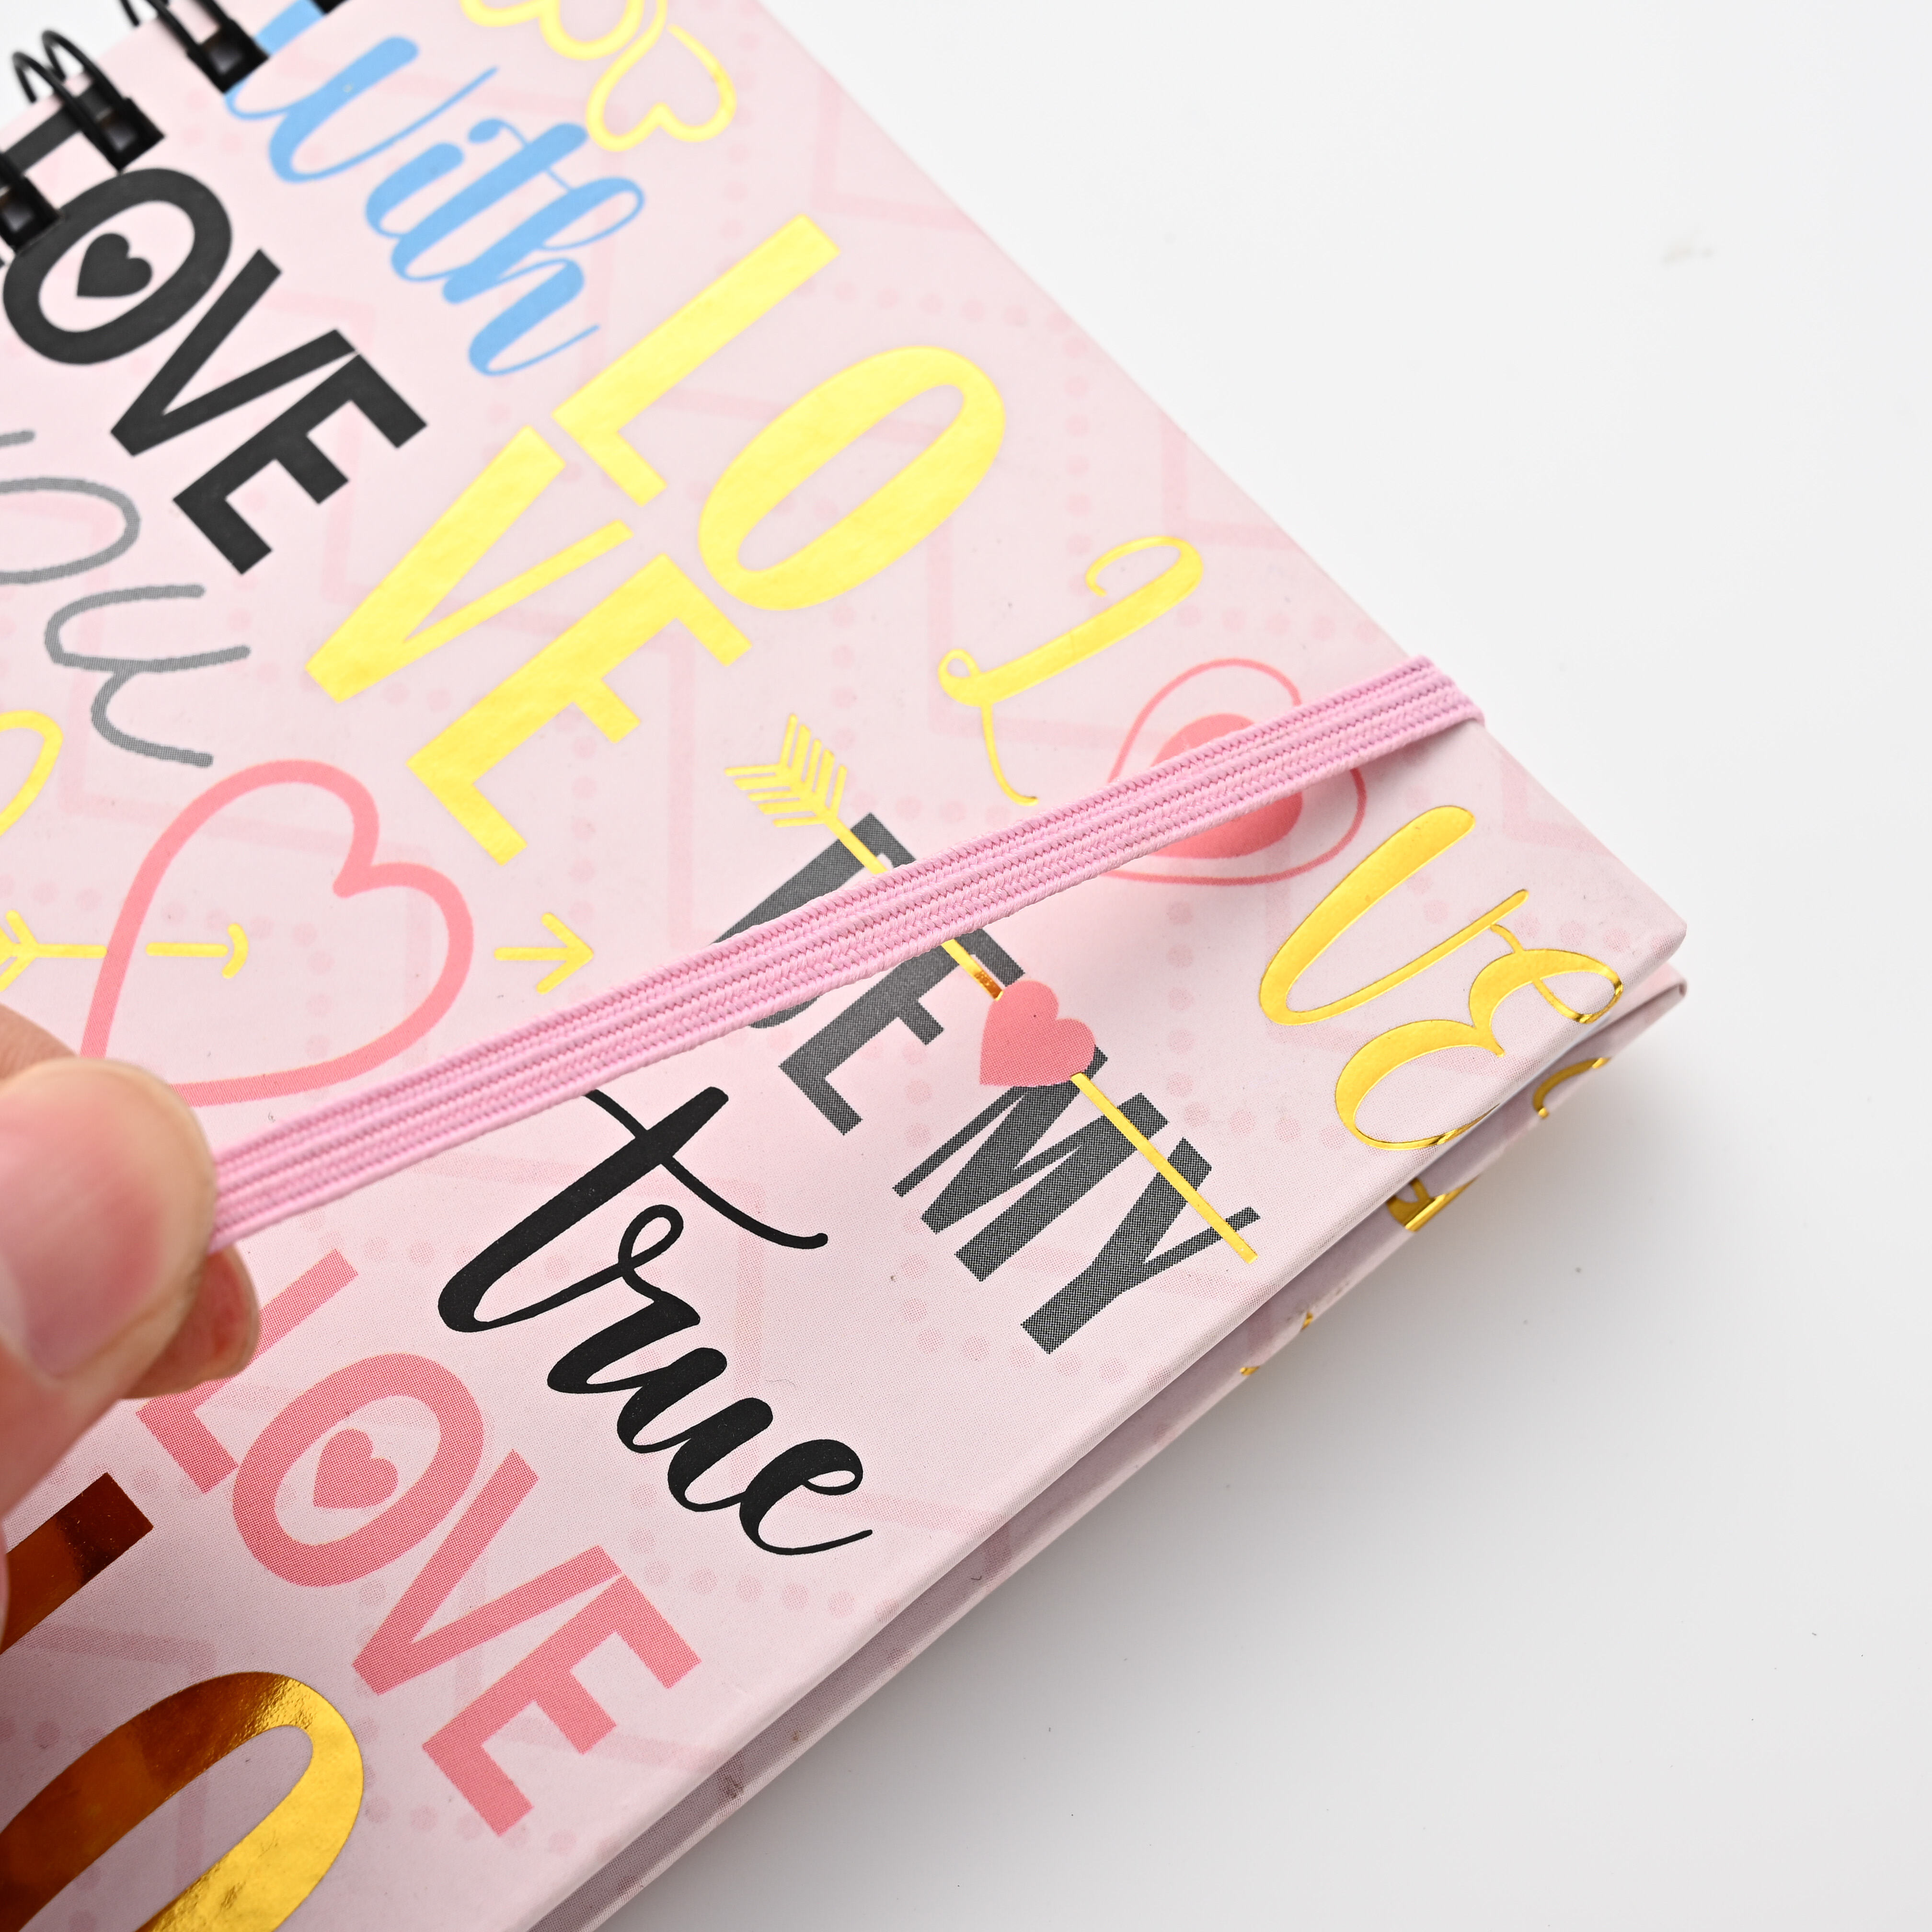 With
LOVE
LOVE
you
LOVE
BE MY
true
LOVE